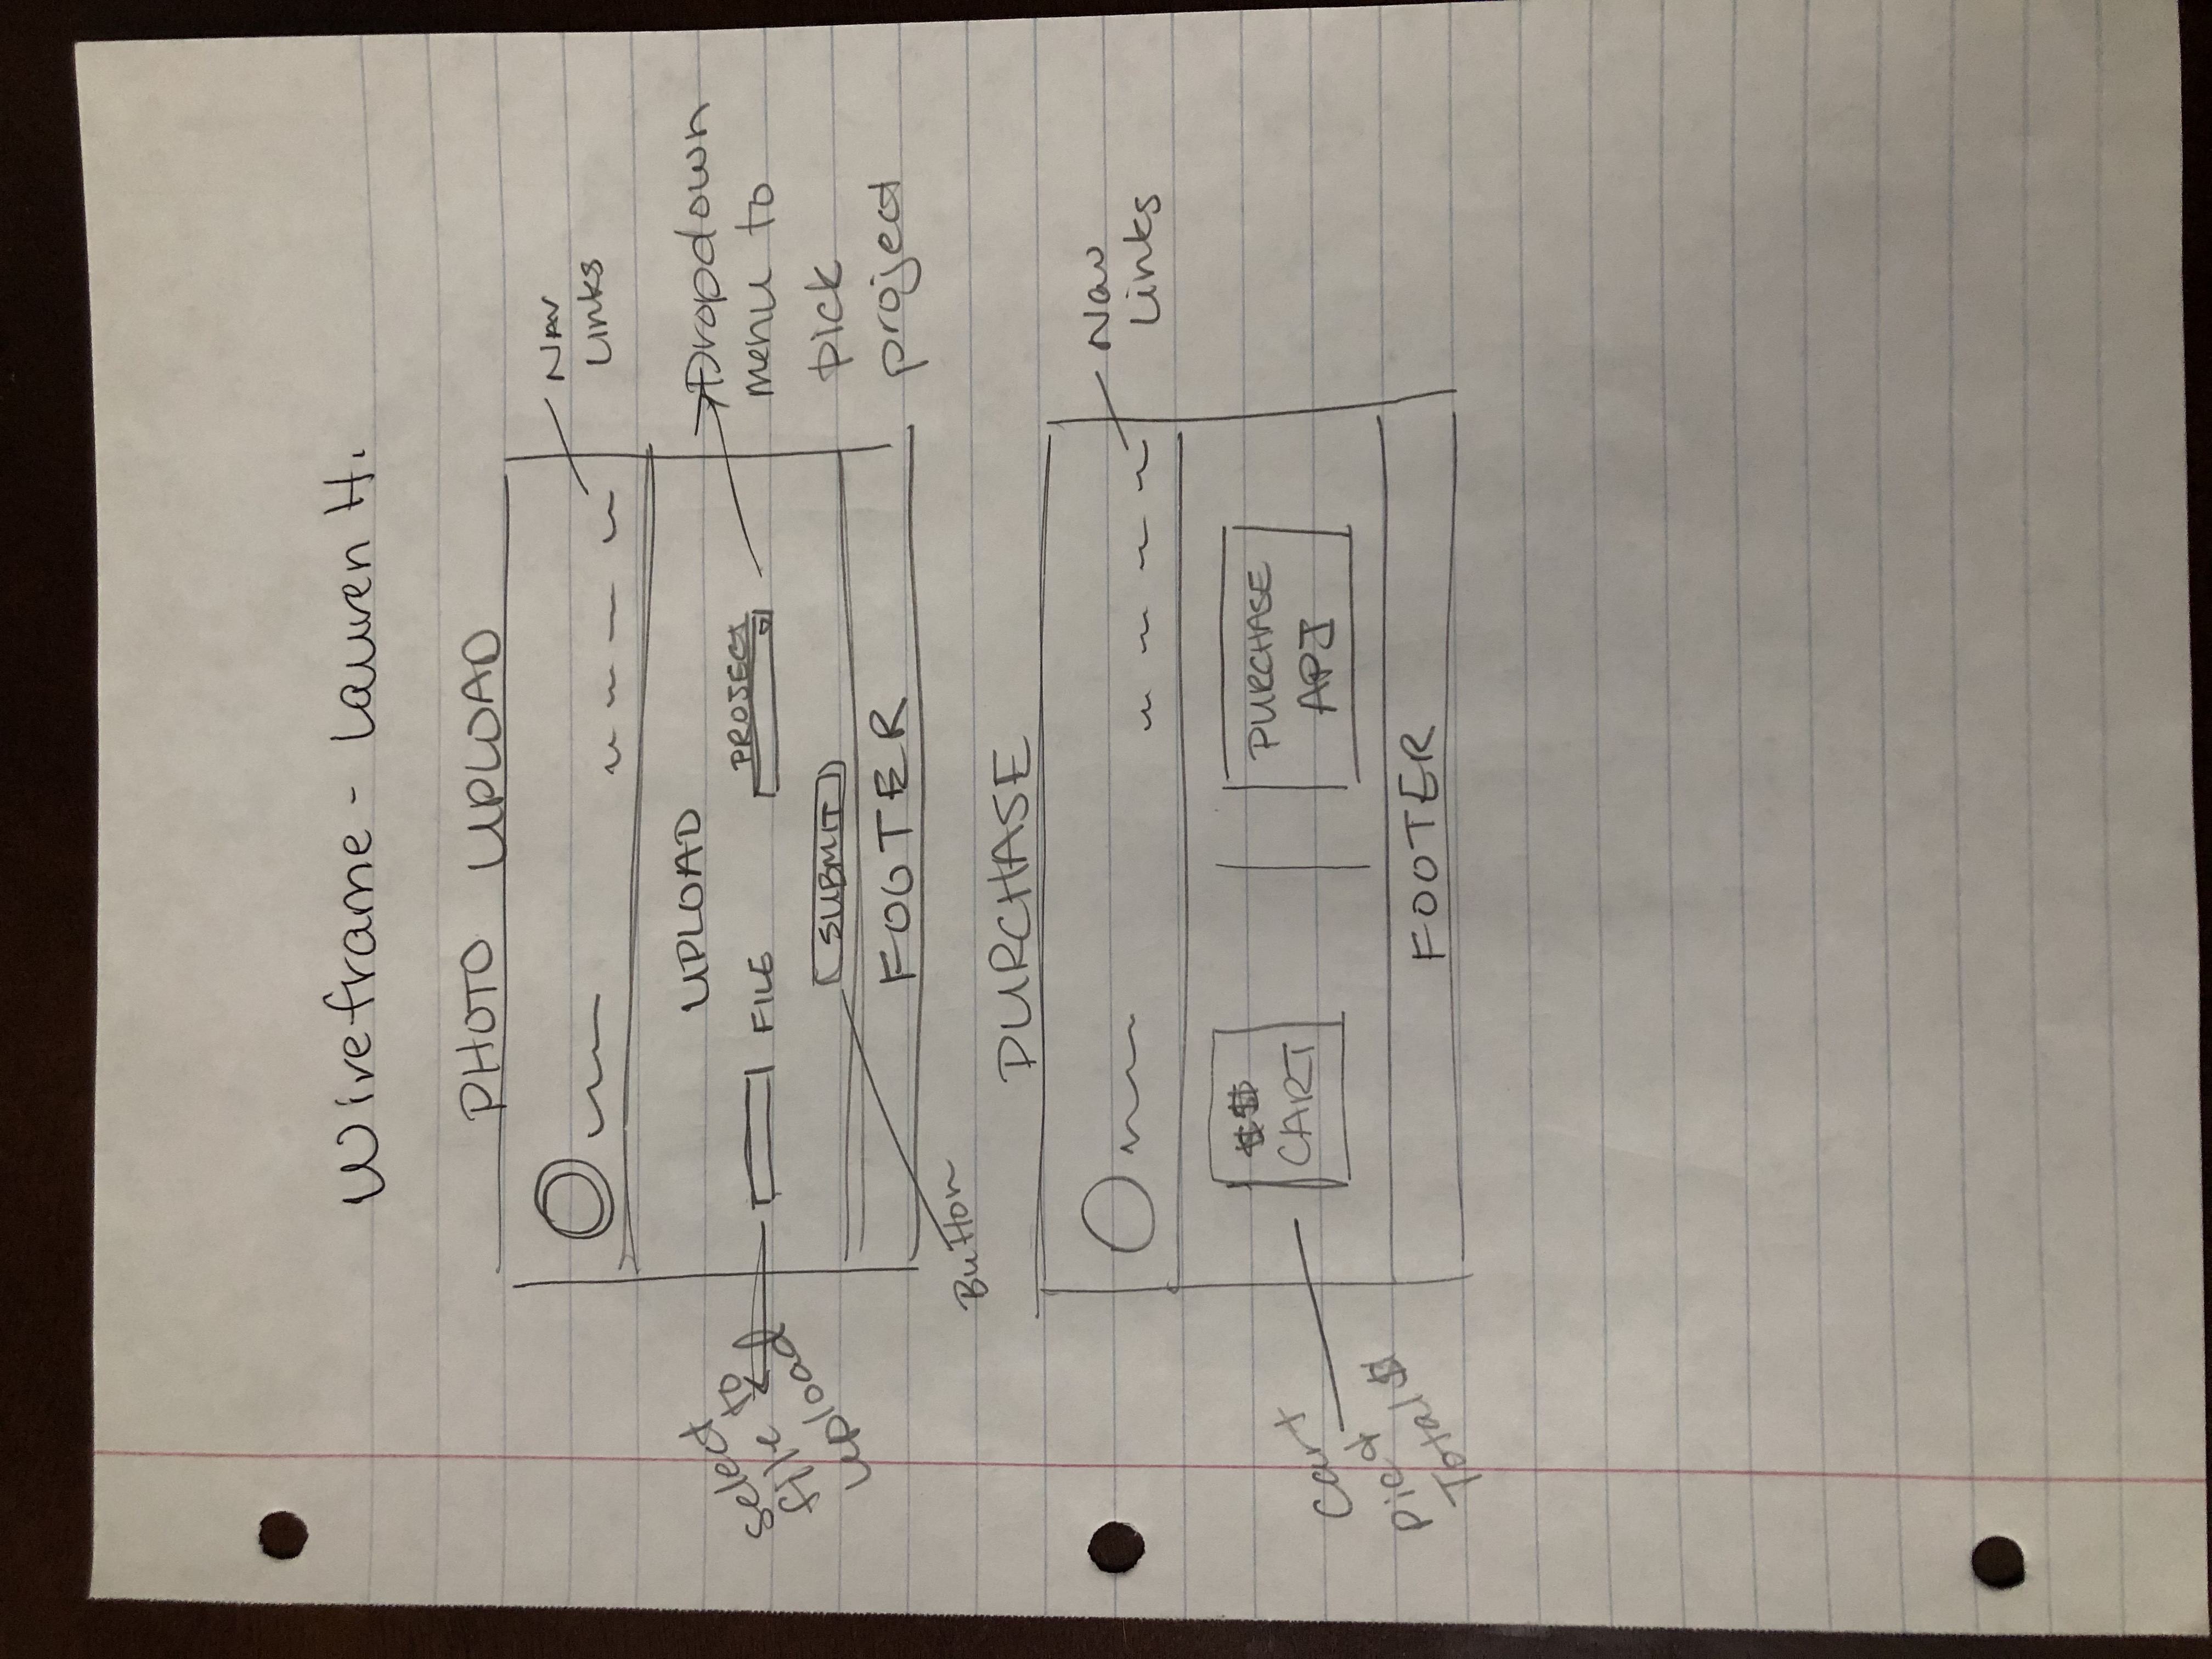 Wireframe - Lauren H.
PHOTO UPLOAD
Nav
Links
UPLOAD
select
file to
upload
FILE
PROJECT
Dropdown
menu to
pick
project
SUBMIT
FOOTER
Button
PURCHASE
Nav
Links
$$
CART
PURCHASE
API
Cart
Pic &
Total $
FOOTER